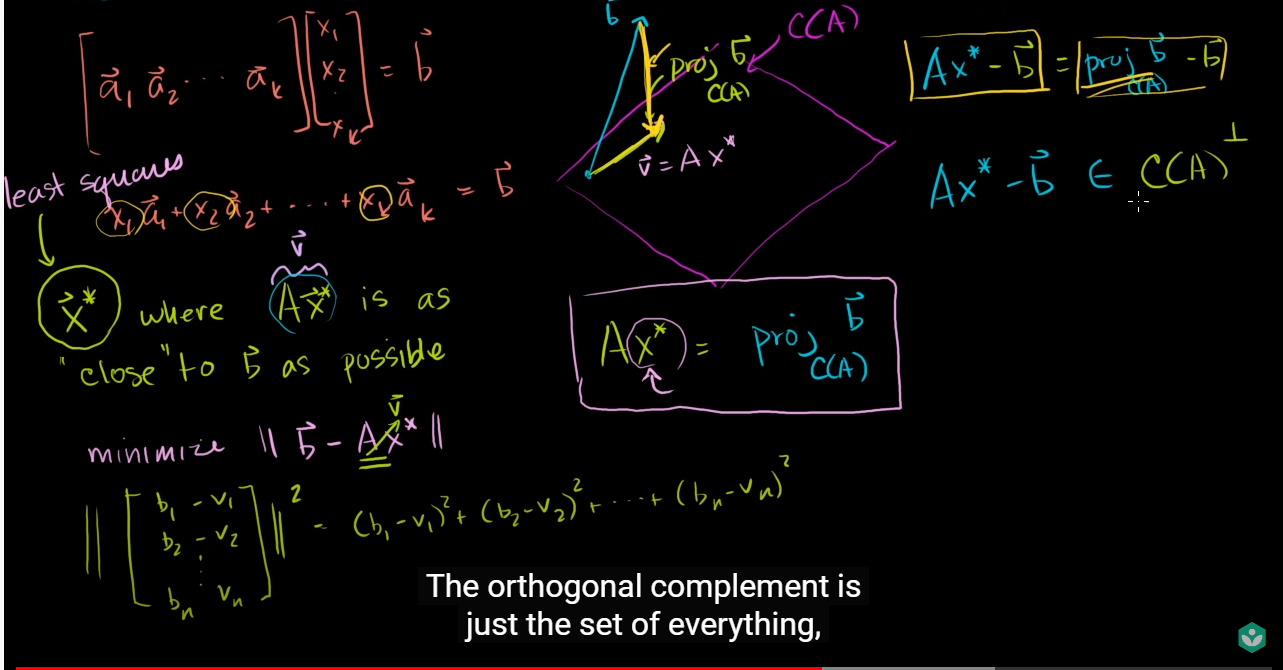 [a⃗₁ a⃗₂ ⋯ a⃗ₖ] [x₁ x₂ ⋮ xₖ] = b⃗
least squares
x₁a⃗₁ + x₂a⃗₂ + ⋯ + xₖa⃗ₖ = b⃗
v⃗
x⃗* where Ax⃗* is as
"close" to b⃗ as possible
minimize ‖b⃗ - Ax⃗*‖
v⃗
‖[b₁ - v₁
b₂ - v₂
⋮
bₙ vₙ]‖² = (b₁ - v₁)² + (b₂ - v₂)² + ⋯ + (bₙ - vₙ)²
b⃗
C(A)
proj b⃗
C(A)
v⃗ = Ax*
Ax* = proj b⃗
C(A)
Ax* - b⃗ = proj b⃗ - b⃗
C(A)
Ax* - b⃗ ∈ C(A)⊥
The orthogonal complement is
just the set of everything,